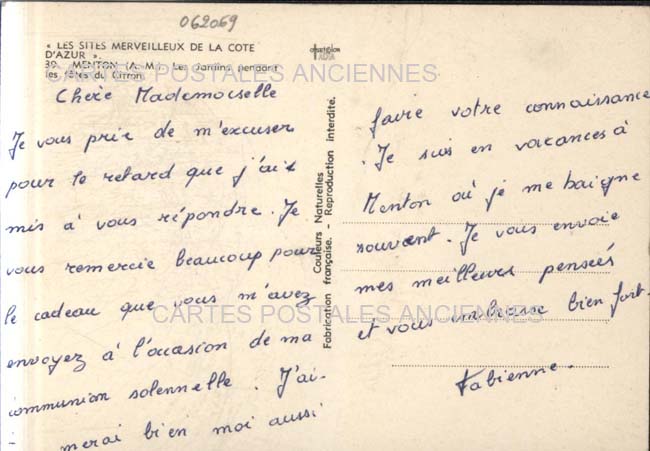 062069
« LES SITES MERVEILLEUX DE LA COTE
D'AZUR ».
39. MENTON (A.-M.) Les Jardins pendant
les fêtes du Citron
CARTES POSTALES ANCIENNES
Chère Mademoiselle
Je vous prie de m'excuser
pour le retard que j'ai
mis à vous répondre. Je
vous remercie beaucoup pour
le cadeau que vous m'avez
envoyez à l'occasion de ma
communion solennelle. J'ai-
merai bien moi aussi
Couleurs Naturelles
Fabrication française. - Reproduction interdite.
faire votre connaissance
. Je suis en vacances à
Menton où je me baigne
souvent. Je vous envoie
mes meilleurs pensées
et vous embrasse bien fort.
Fabienne.
CARTES POSTALES ANCIENNES